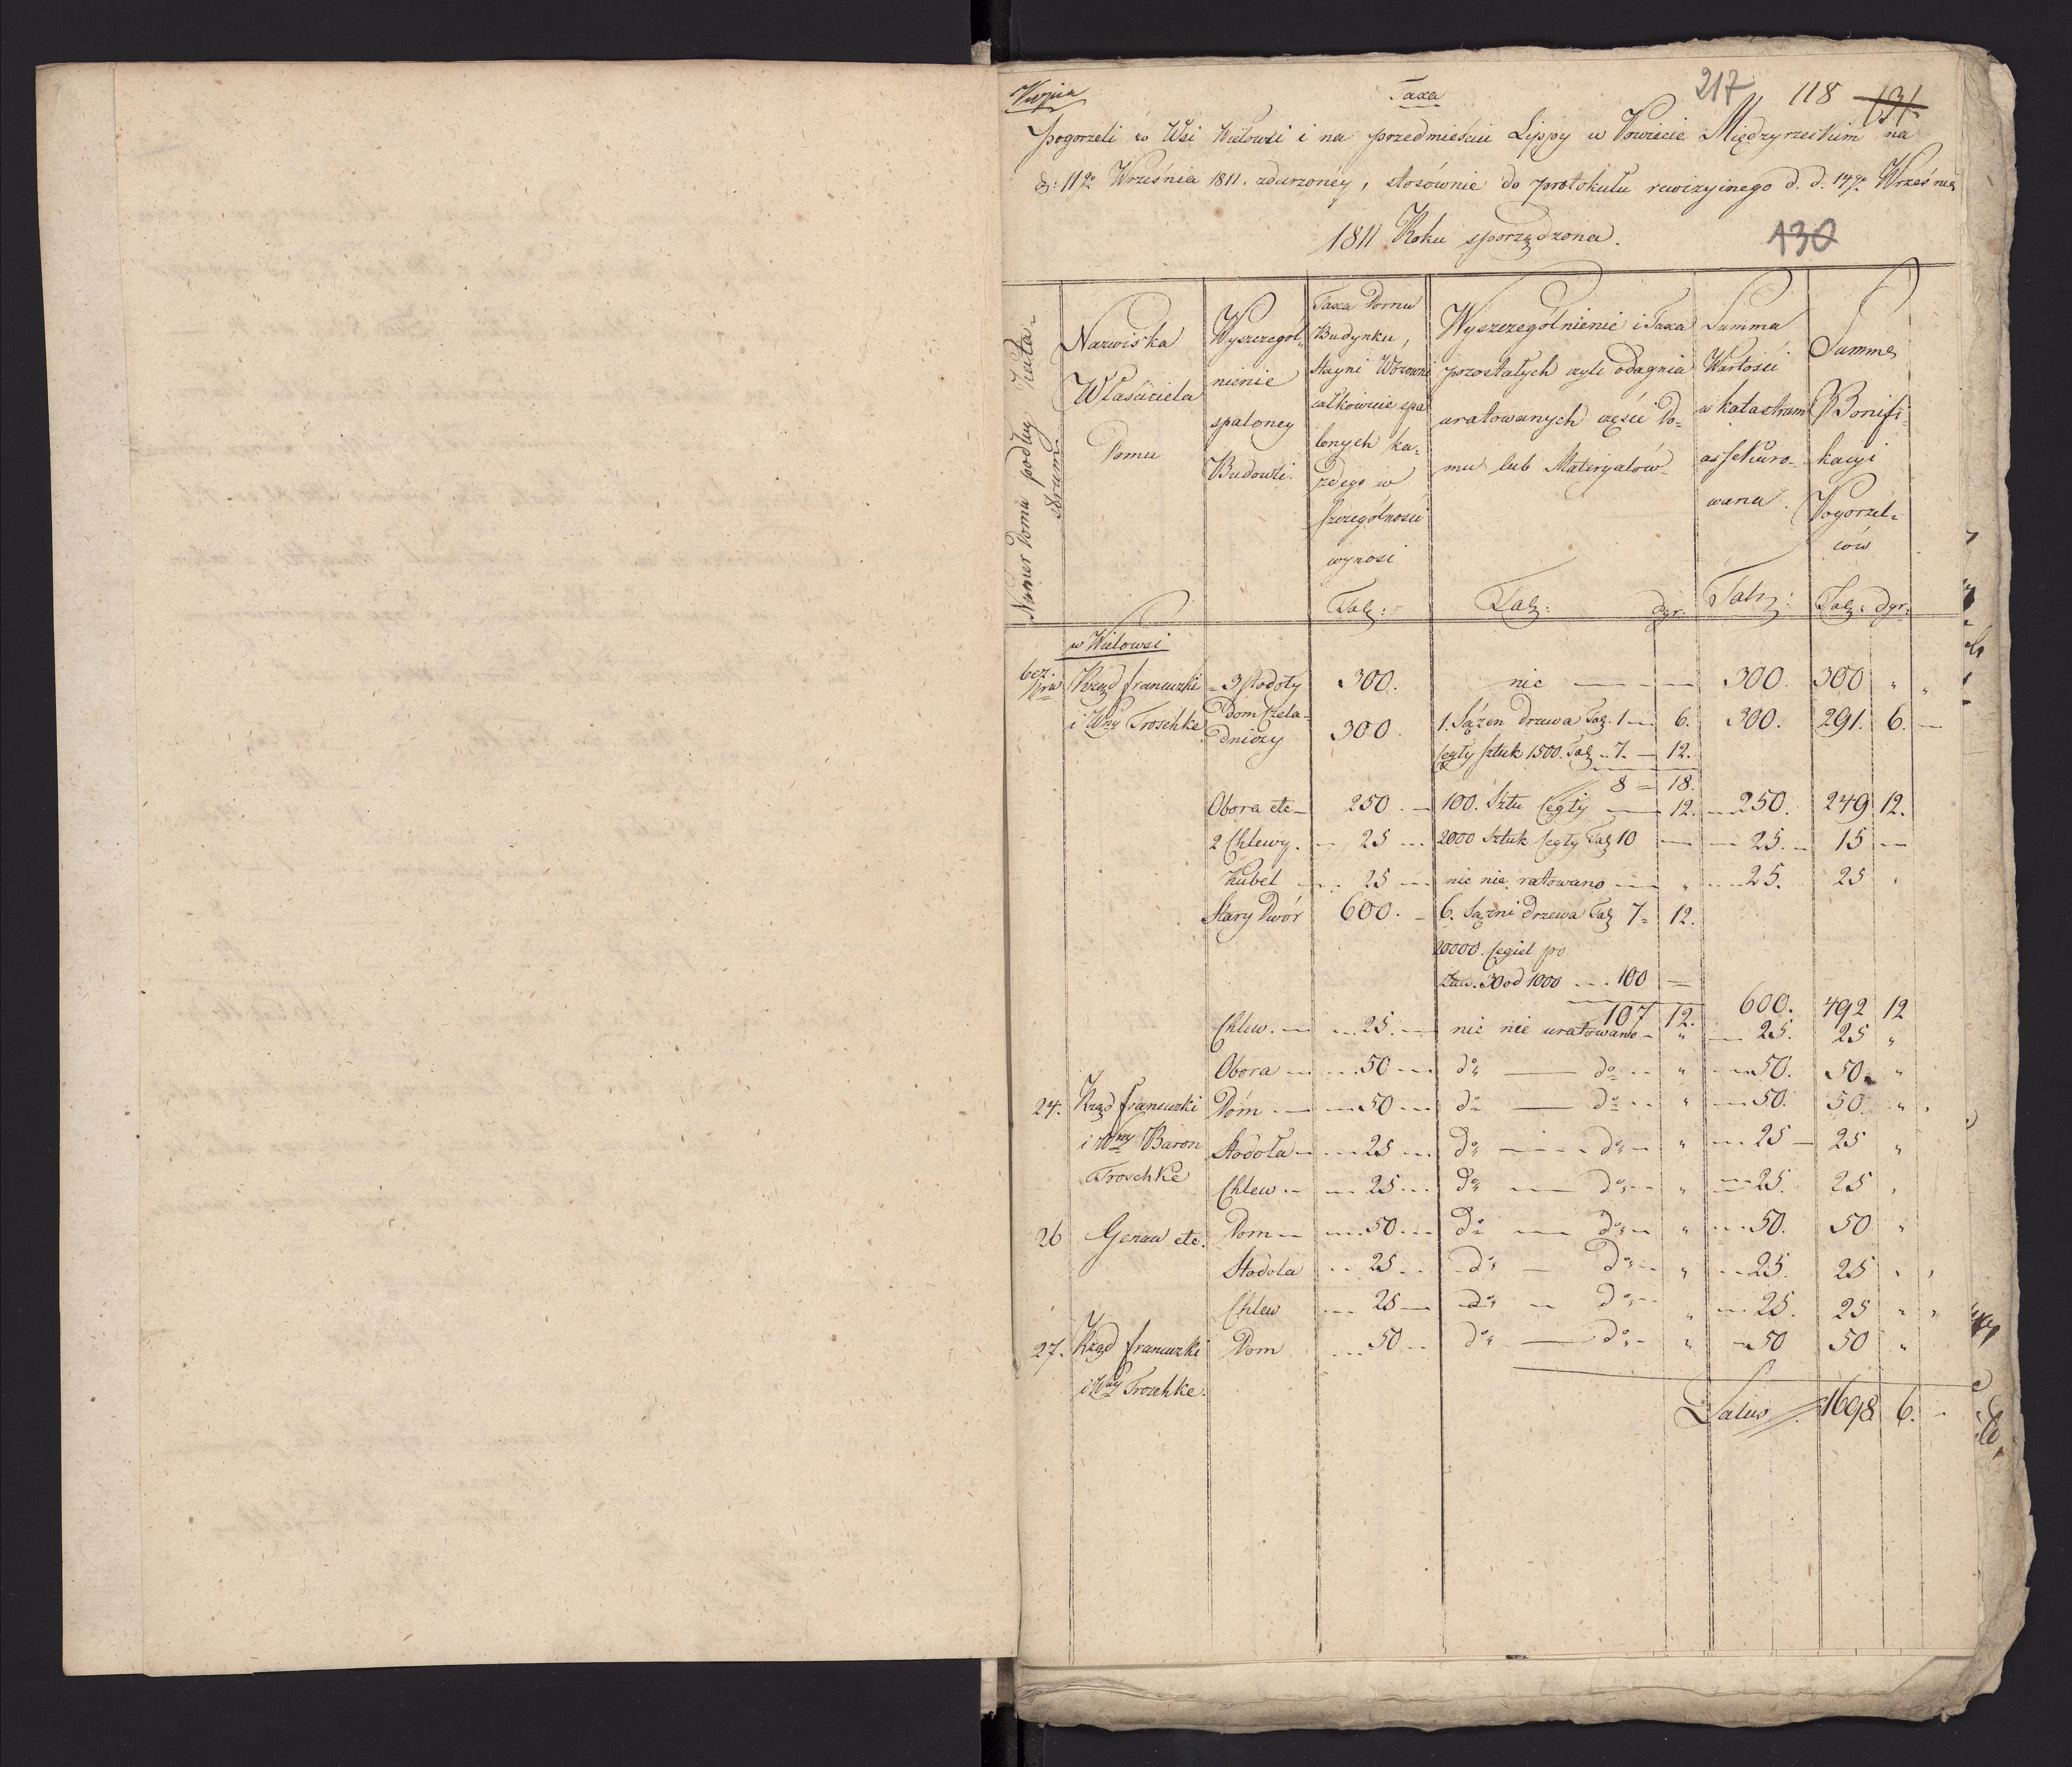 Kopia
Taxa
217 118 131
Pogorzeli w Wsi Wielowsi i na przedmieściu Lippy w Powiecie Międzyrzeckim na
d: 11go Września 1811. zdarzoney, stosównie do protokułu rewizyinego d. d. 14go Września
1811 Roku sporządzona.
130
Numer Domu podług Kata-
strum
Nazwiska
Właściciela
Domu
Wyszczegól-
nienie
spaloney
Budowli.
Taxa Domu
Budynku,
Stayni Wozowni
całkowicie spa
lonych ka-
żdego w
szczególności
wynosi
Tal:
Wyszczególnienie i Taxa
pozostałych czyli od ognia
uratowanych części Do-
mu lub Materyałów
Tal: dgr:
Summa
Wartości
w katastrum
assekuro-
wana.
Talr:
Summa
Bonifi-
kacyi
Pogorzel-
ców
Tal: dgr:
w Wielowsi
bez Nru Rząd francuzki - 3 stodoły 300. nic — — 300. 300 " "
i Wny Troschke Dom Czela- 1. Sążeń drzewa Tal. 1 — 6. 300. 291. 6. —
dniczy 300.
Cegły sztuk 1500. Tal .. 7. — 12.
8 = 18.
Obora etc — 250. — 100. Sztu Cegły — 12. — 250. 249 12.
2 Chlewy. — 25 ... 2000 sztuk Cegły Tal 10 — — 25. — 15 —
Kubel — .. 25 — nic nie ratowano — " .... 25. 25 "
Stary Dwór 600. — 6. Sążni drzewa Tal 7 = 12.
20000. Cegieł po
30 od 1000 ... 100 =
107 12. 600. 492 12
Chlew. — ... 25. — nic nie uratowano — " — 25. 25 "
Obora — ... 50 ... do — do .. " ... 50. 50. "
24. Rząd francuzki Dom — — 50 ... do — do .. " — 50. 50. " "
i Wny Baron Stodoła — ... 25 ... do — do — " ... 25 — 25 "
Troschke Chlew .. — 25 ... do — do .. " — 25. 25 "
26 Genau etc. Dom — ... 50 ... do — do — " ... 50. 50 "
Stodola .. 25 .. do — do .. " .. 25. 25 " "
Chlew ... 25 — do — do .. " — 25. 25 " "
27. Rząd francuzki Dom ... 50 .. do — do .. " — 50 50 "
i Wny Troschke.
Latus 1698 6. —